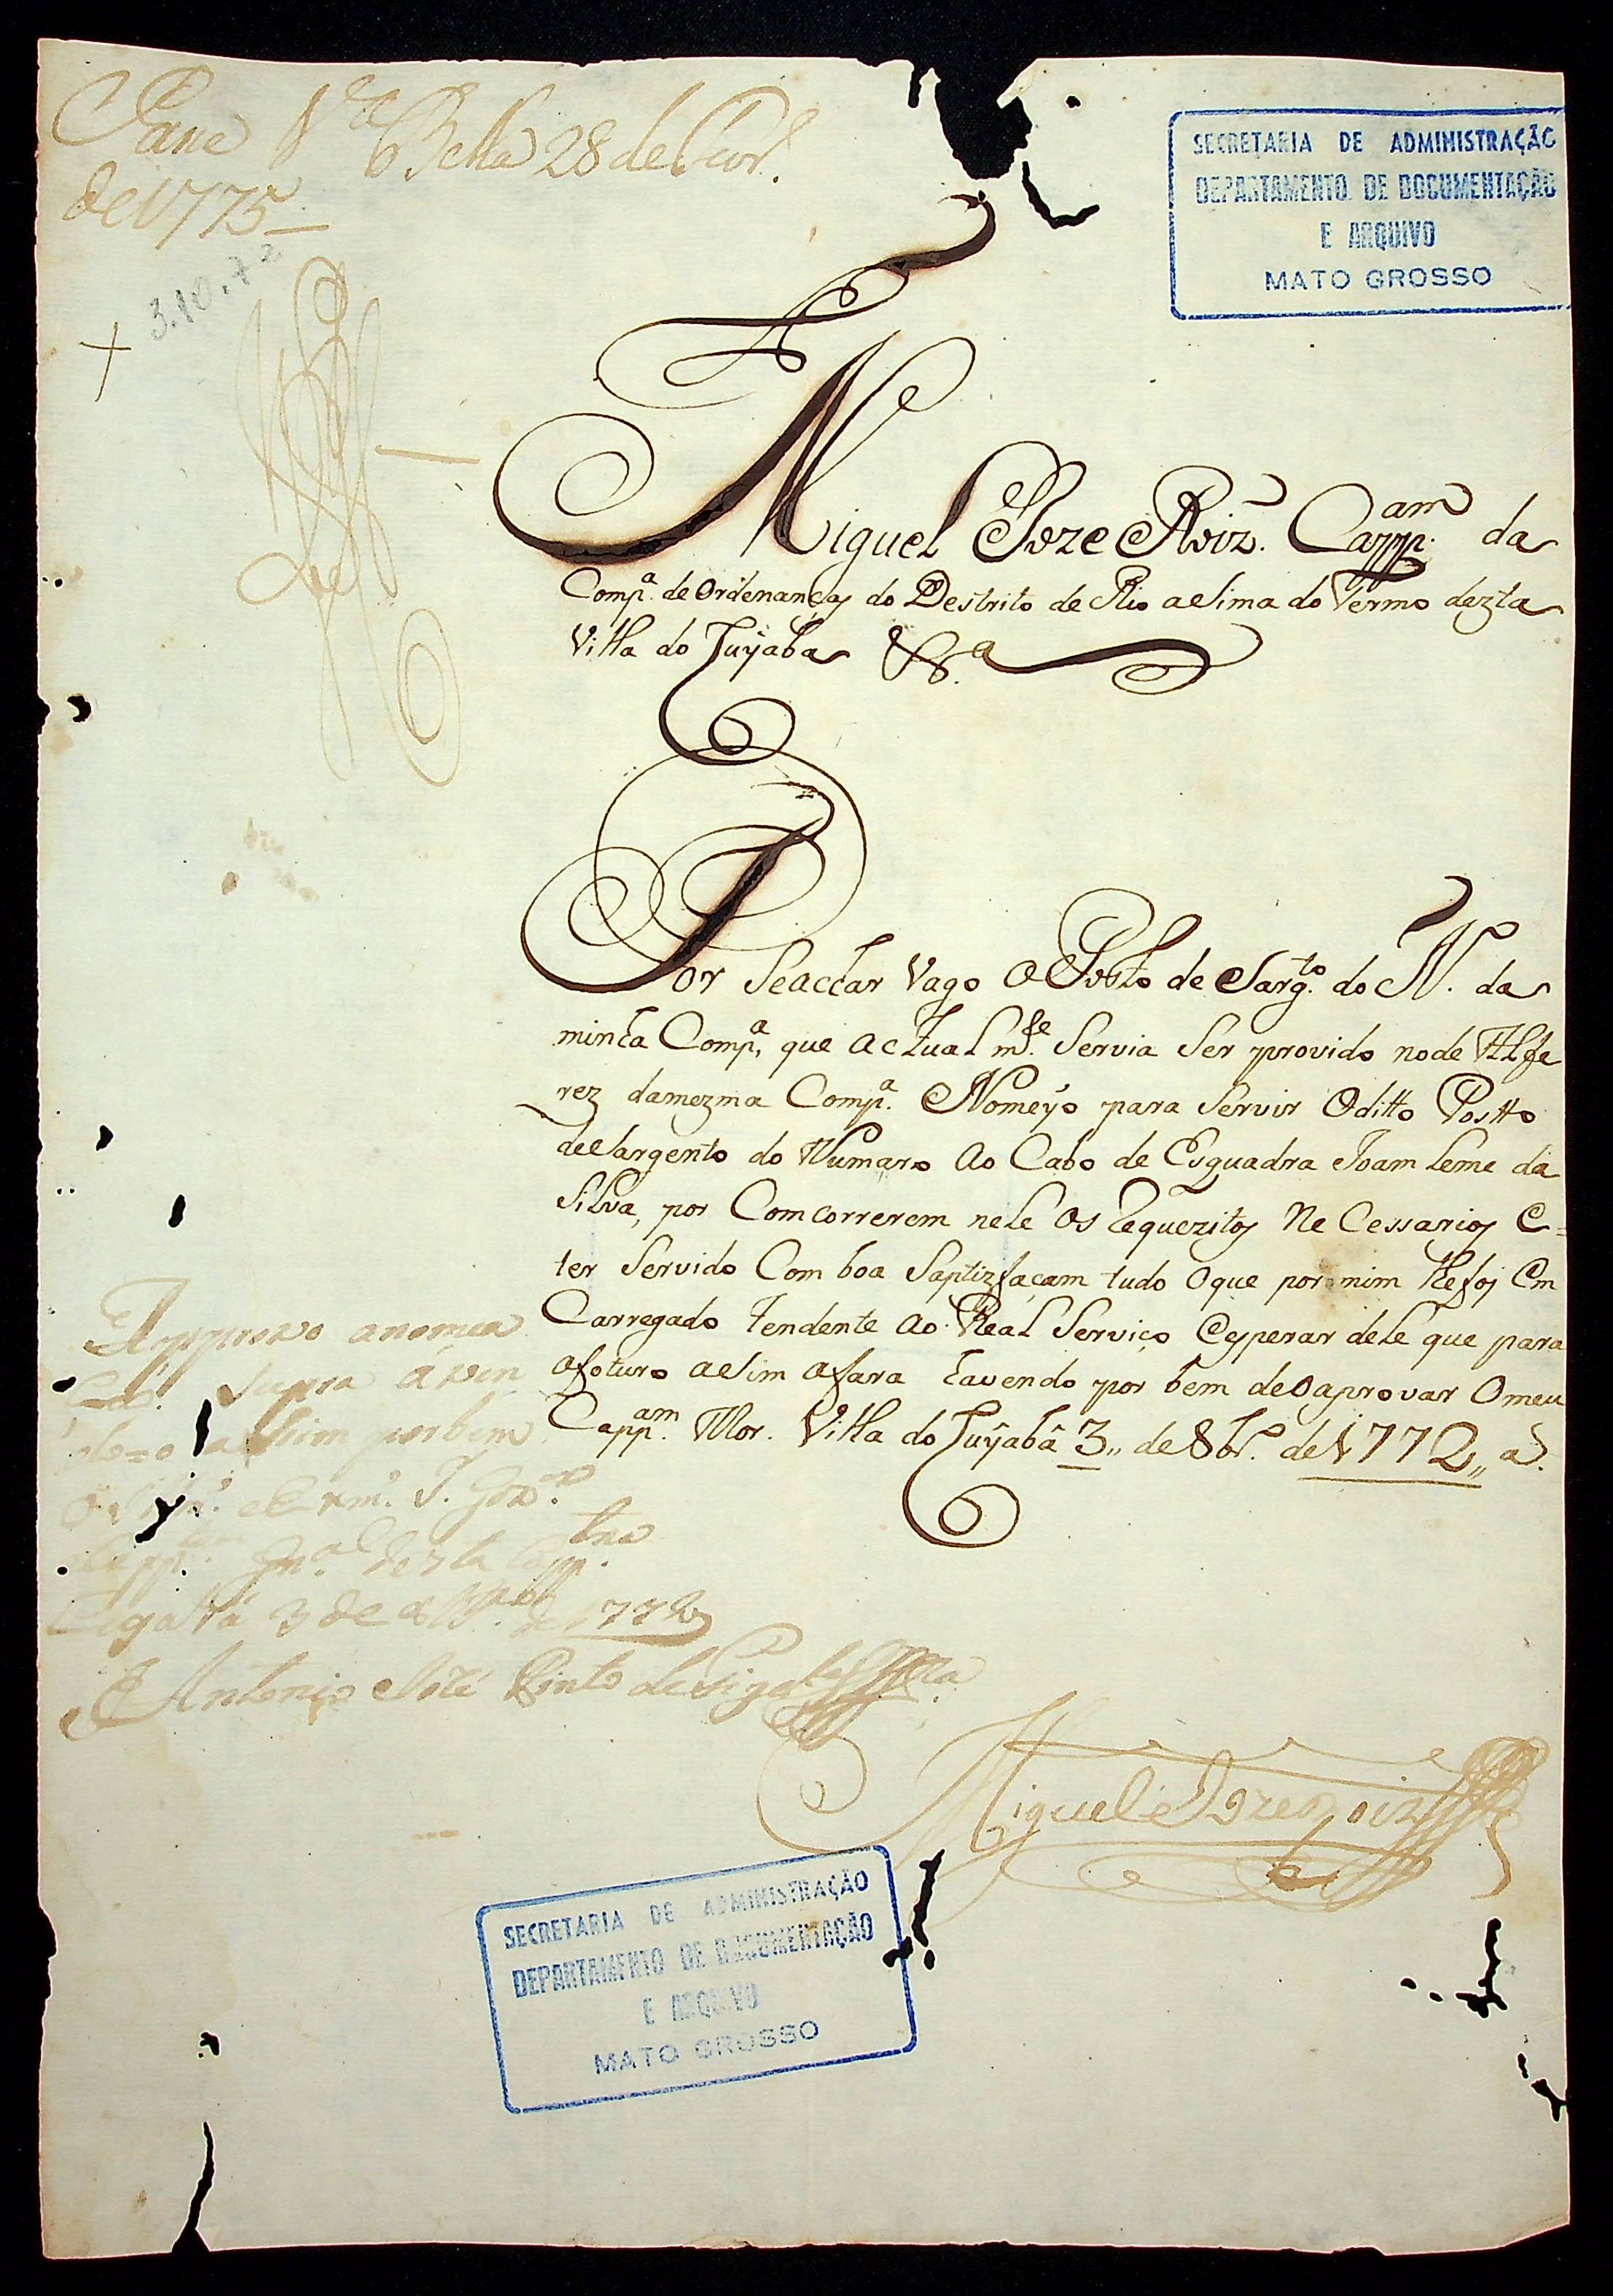 Pase V.ª Bella 28 de
de 1775
3.10.72
SECRETARIA DE ADMINISTRAÇÃO
DEPARTAMENTO DE DOCUMENTAÇÃO
E ARQUIVO
MATO GROSSO
Miguel Joze Roiz. Capp.am da
Comp.ª de Ordenanças do Destrito de Rio asima do Termo dezta
Villa do Cuyaba &.ª
Por se achar Vago o Posto de Sarg.to do N. da
minha Comp.ª, que actualm.te Servia Ser provido no de Alfe
rez da mezma Comp.ª Nomeyo para Servir O ditto Postto
de Sargento do Numaro Ao Cabo de Esquadra Joam Leme da
Silva, por Comcorrerem nele Os Requezitos NeCessarios e
ter Servido Com boa Saptizfaçam tudo o que por mim lhe foi Em
Carregado tendente ao Real Serviço e esperar dele que para
o foturo asim o fara havendo por bem de o aprovar O meu
Capp.am Mor. Villa do Cuyabâ 3,, de 8br.º de 1772,, a.
Approvo a nomea
supra aven
do=o assim por bem
e Ex.mo S. Gov.or
Gn.al desta Capp.tnia
3 de 8br.º de 1772
Antonio José Pinto de
Miguel Joze Roiz
SECRETARIA DE ADMINISTRAÇÃO
DEPARTAMENTO DE DOCUMENTAÇÃO
E ARQUIVO
MATO GROSSO